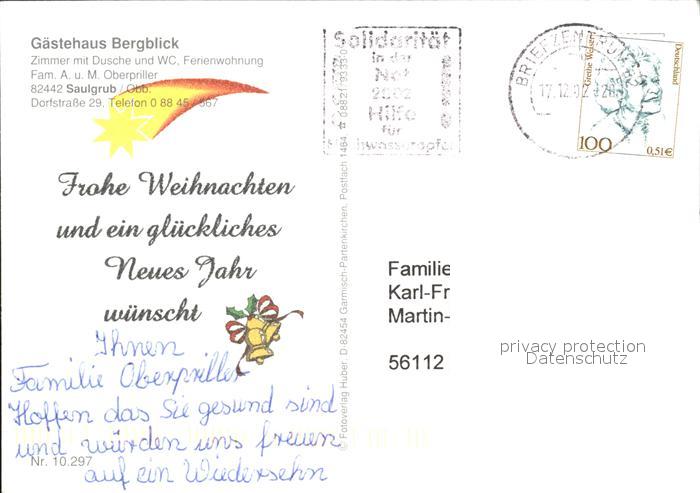 Gästehaus Bergblick
Zimmer mit Dusche und WC, Ferienwohnung
Fam. A. u. M. Oberpriller
82442 Saulgrub / Obb.
Dorfstraße 29, Telefon 0 88 45 / 567
Frohe Weihnachten
und ein glückliches
Neues Jahr
wünscht
Ihnen
Familie Oberpriller
Hoffen das Sie gesund sind
und würden uns freuen
auf ein Wiedersehn
Nr. 10.297
© Fotoverlag Huber, D-82454 Garmisch-Partenkirchen, Postfach 1464
Solidarität
in der
Not
2002
Hilfe
für
BRIEFZENTRUM
17.12.02
Grethe Weiser
Deutschland
100
0,51€
Familie
Karl-Fr
Martin-
56112
privacy protection
Datenschutz